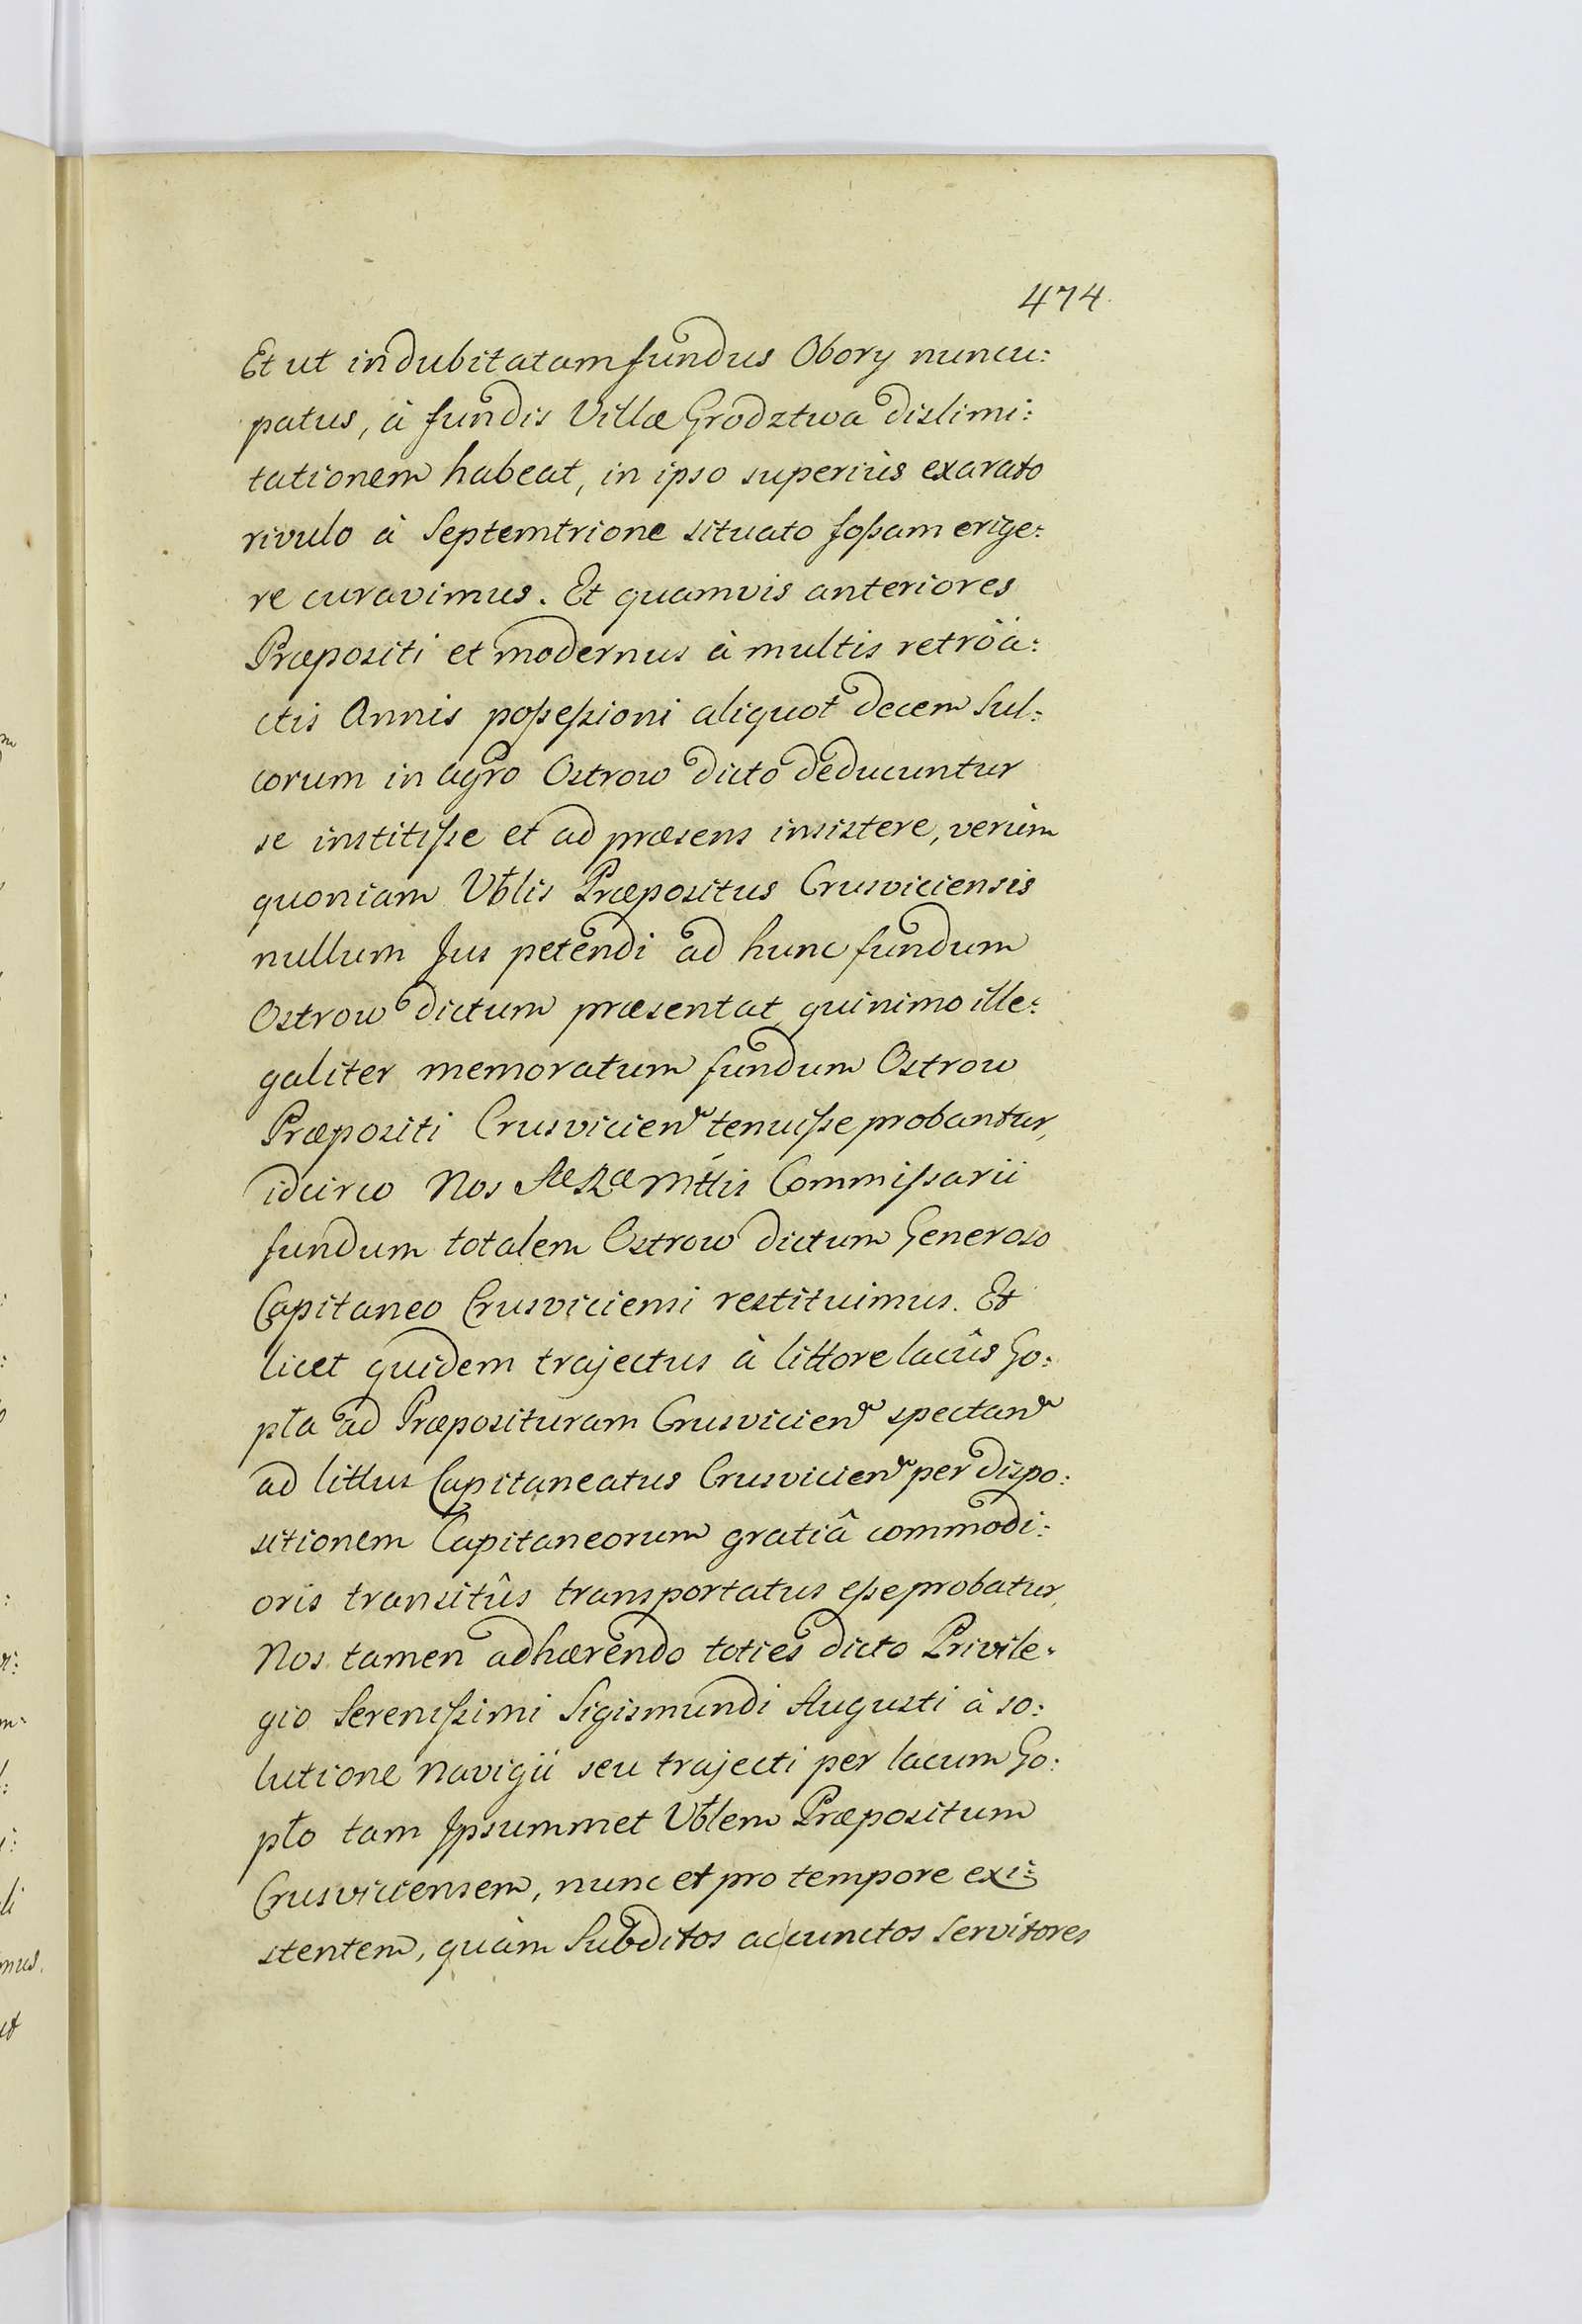 474.
Et ut indubitatam fundus Obory nuncu:
patus, à fundis Villæ Grodztwa dislimi:
tationem habeat, in ipso superiùs exarato
rivulo à Septemtrione situato foßam erige:
re curavimus. Et quamvis anteriores
Præpositi et modernus à multis retròa:
ctis Annis poßeßioni aliquot decem Sul:
corum in agro Ostrow dicto deducuntur
se institiße et ad præsens insistere, verùm
quoniam Vblis Præpositus Crusviciensis
nullum Jus petendi ad hunc fundum
Ostrow dictum præsentat quinimo ille:
galiter memoratum fundum Ostrow
Præpositi Crusvicien tenuiße probantur,
idcirco Nos Sæ Ræ Mttis Commißarii
fundum totalem Ostrow dictum Generoso
Capitaneo Crusviciensi restituimus. Et
licet quidem trajectus à littore lacûs Go:
pła ad Præposituram Crusvicien spectan
ad littus Capitaneatus Crusvicien per dispo:
sitionem Capitaneorum gratiâ commodi:
oris transitûs transportatus eße probatur,
Nos tamen adhærendo toties dicto Privile:
gio Serenißimi Sigismundi Augusti à so:
lutione navigii seu trajecti per lacum Go:
pło tam Ipsummet Vblem Præpositum
Crusviciensem, nunc et pro tempore exi:
stentem, quàm Subditos ac cunctos Servitores